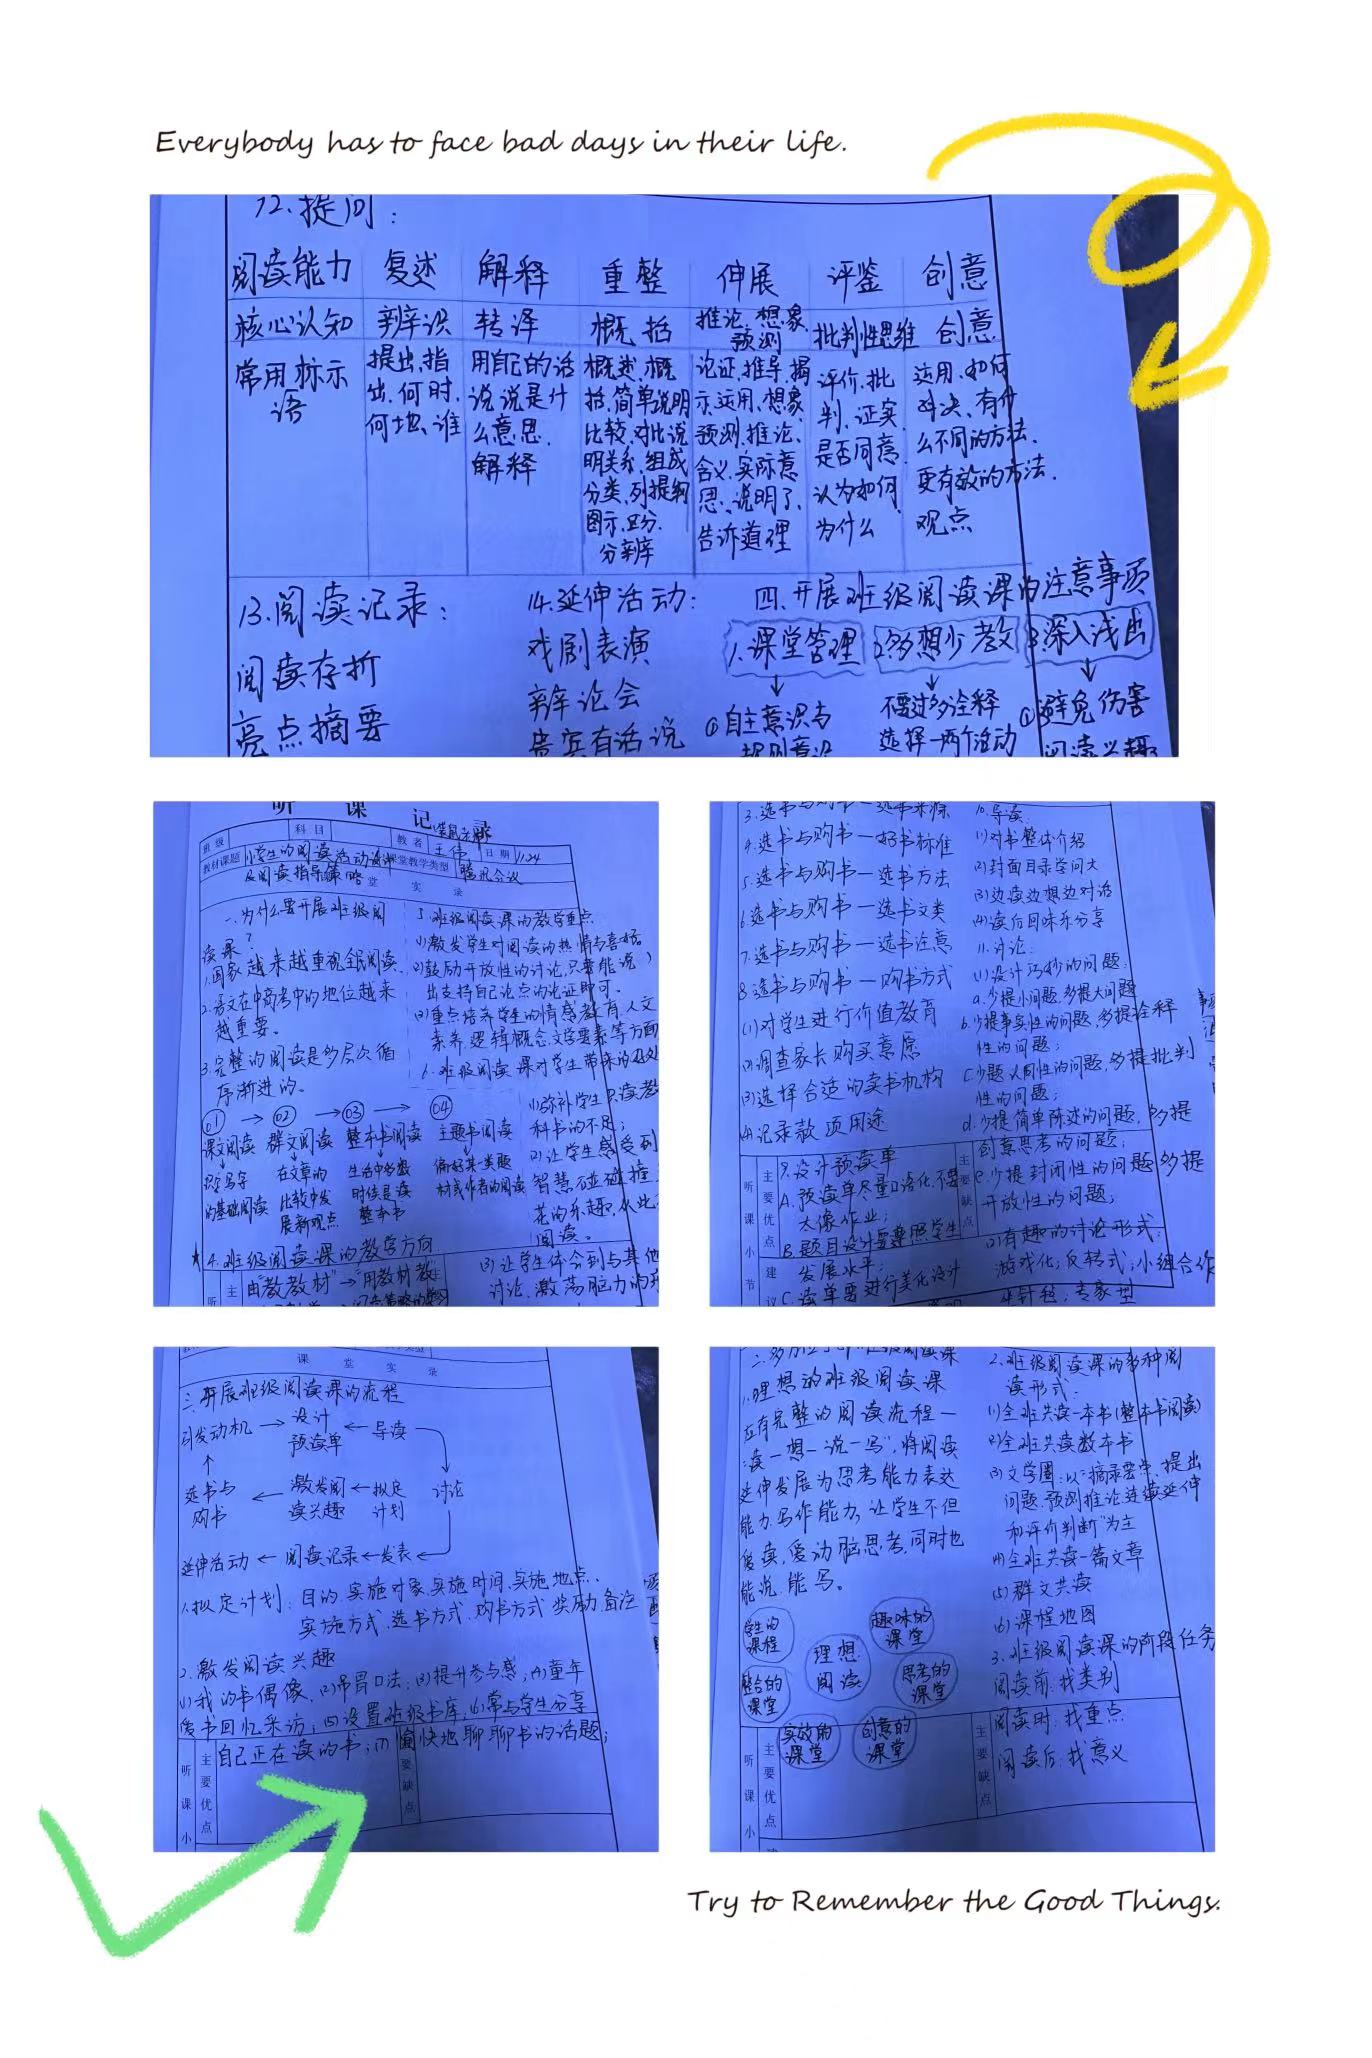 Everybody has to face bad days in their life.
12.提问:
阅读能力 复述 解释 重整 伸展 评鉴 创意
核心认知 辨识 转译 概括 推论、想象、预测 批判性思维 创意
常用标示语
提出、指出、何时、何地、谁
用自己的话说说是什么意思、解释
概述、概括、简单说明
比较、对比说明关系、组成
分类、列提纲
图示、区分、
分辨
论证、推导、揭示、运用、想象
预测、推论、
含义、实际意思、说明了、
告诉道理
评价、批判、证实、
是否同意、
认为如何
为什么
运用、如何
解决、有什么不同的方法、
更有效的方法、
观点
13.阅读记录:
阅读存折
亮点摘要
14.延伸活动:
戏剧表演
辩论会
贵宾有话说
四.开展班级阅读课的注意事项
1.课堂管理 2.多想少教 3.深入浅出
①自主意识与
规则意识
不要过多诠释
选择一两个活动
①避免伤害
阅读兴趣
听 课 记 录
班级 科目 教者 王伟 日期 11.24
教材课题 小学生的阅读活动设计
及阅读指导策略
课堂教学类型 腾讯会议
堂 实 录
一.为什么要开展班级阅
读课?
1.国家越来越重视全民阅读.
2.语文在中高考中的地位越来
越重要。
3.完整的阅读是多层次循
序渐进的。
01 → 02 → 03 → 04
课文阅读 群文阅读 整本书阅读 主题书阅读
识字写字
的基础阅读
在文章的
比较中发
展新观点
生活中多数
时候是读
整本书
偏好某一类题
材或作者的阅读
★4.班级阅读课的教学方向
由“教教材”→“用教材教”
5.班级阅读课的教学重点
(1)激发学生对阅读的热情与喜好。
(2)鼓励开放性的讨论,只要能说
出支持自己论点的论证即可。
(3)重点培养学生的情感教育、人文
素养、逻辑概念、文学要素等方面
6.班级阅读课对学生带来的好处
(1)弥补学生只读教
科书的不足;
(2)让学生感受到
智慧碰碰撞
花的乐趣,从此
阅读。
(3)让学生体会到与其他
讨论、激荡脑力的
听 主
3.选书与购书—选书来源
4.选书与购书—好书标准
5.选书与购书—选书方法
6.选书与购书—选书文类
7.选书与购书—选书注意
8.选书与购书—购书方式
(1)对学生进行价值教育
(2)调查家长购买意愿
(3)选择合适的读书机构
(4)记录款项用途
听课小节 主要优点
9.设计预读单
A.预读单尽量口语化,不要
太像作业;
B.题目设计需要照学生
发展水平;
C.读单要进行美化设计
建议
10.导读:
(1)对书整体介绍
(2)封面目录学问大
(3)边读边想边对话
(4)读后回味乐分享
11.讨论:
(1)设计巧妙的问题:
a.少提小问题,多提大问题
b.少提事实性的问题,多提诠释
性的问题;
c.少题认同性的问题,多提批判
性的问题;
d.少提简单陈述的问题,多提
创意思考的问题;
e.少提封闭性的问题多提
开放性的问题;
主要缺点
(2)有趣的讨论形式:
游戏化;反转式;小组合作
坐针毡;专家型
课 堂 实 录
三.开展班级阅读课的流程
引发动机 → 设计预读单 ← 导读
↑
选书与购书 ← 激发阅读兴趣 ← 拟定计划 讨论
延伸活动 ← 阅读记录 ← 发表 ←
1.拟定计划:目的、实施对象、实施时间、实施地点、
实施方式、选书方式、购书方式、奖励、备注
2.激发阅读兴趣
(1)我的书偶像、(2)吊胃口法;(3)提升参与感;(4)童年
爱书回忆采访;(5)设置班级书库;(6)常与学生分享
自己正在读的书;(7)愉快地聊聊书的话题;
听课小 主要优点 要缺点
1.理想的班级阅读课
应有完整的阅读流程—
“读—想—说—写”,将阅读
延伸发展为思考能力表达
能力、写作能力,让学生不但
爱读,爱动脑思考,同时也
能说、能写。
学生的课程
趣味的课堂
理想阅读
整合的课堂
思考的课堂
实效的课堂
创意的课堂
2.班级阅读课的多种阅
读形式:
(1)全班共读一本书(整本书阅读)
(2)全班共读数本书
(3)文学圈:以“摘录要点、提出
问题、预测推论、连续延伸
和评价判断”为主
(4)全班共读一篇文章
(5)群文共读
(6)课程地图
3.班级阅读课的阶段任务
阅读前:找类别
阅读时:找重点
阅读后:找意义
听课小 主要优点 主要缺点
Try to Remember the Good Things.